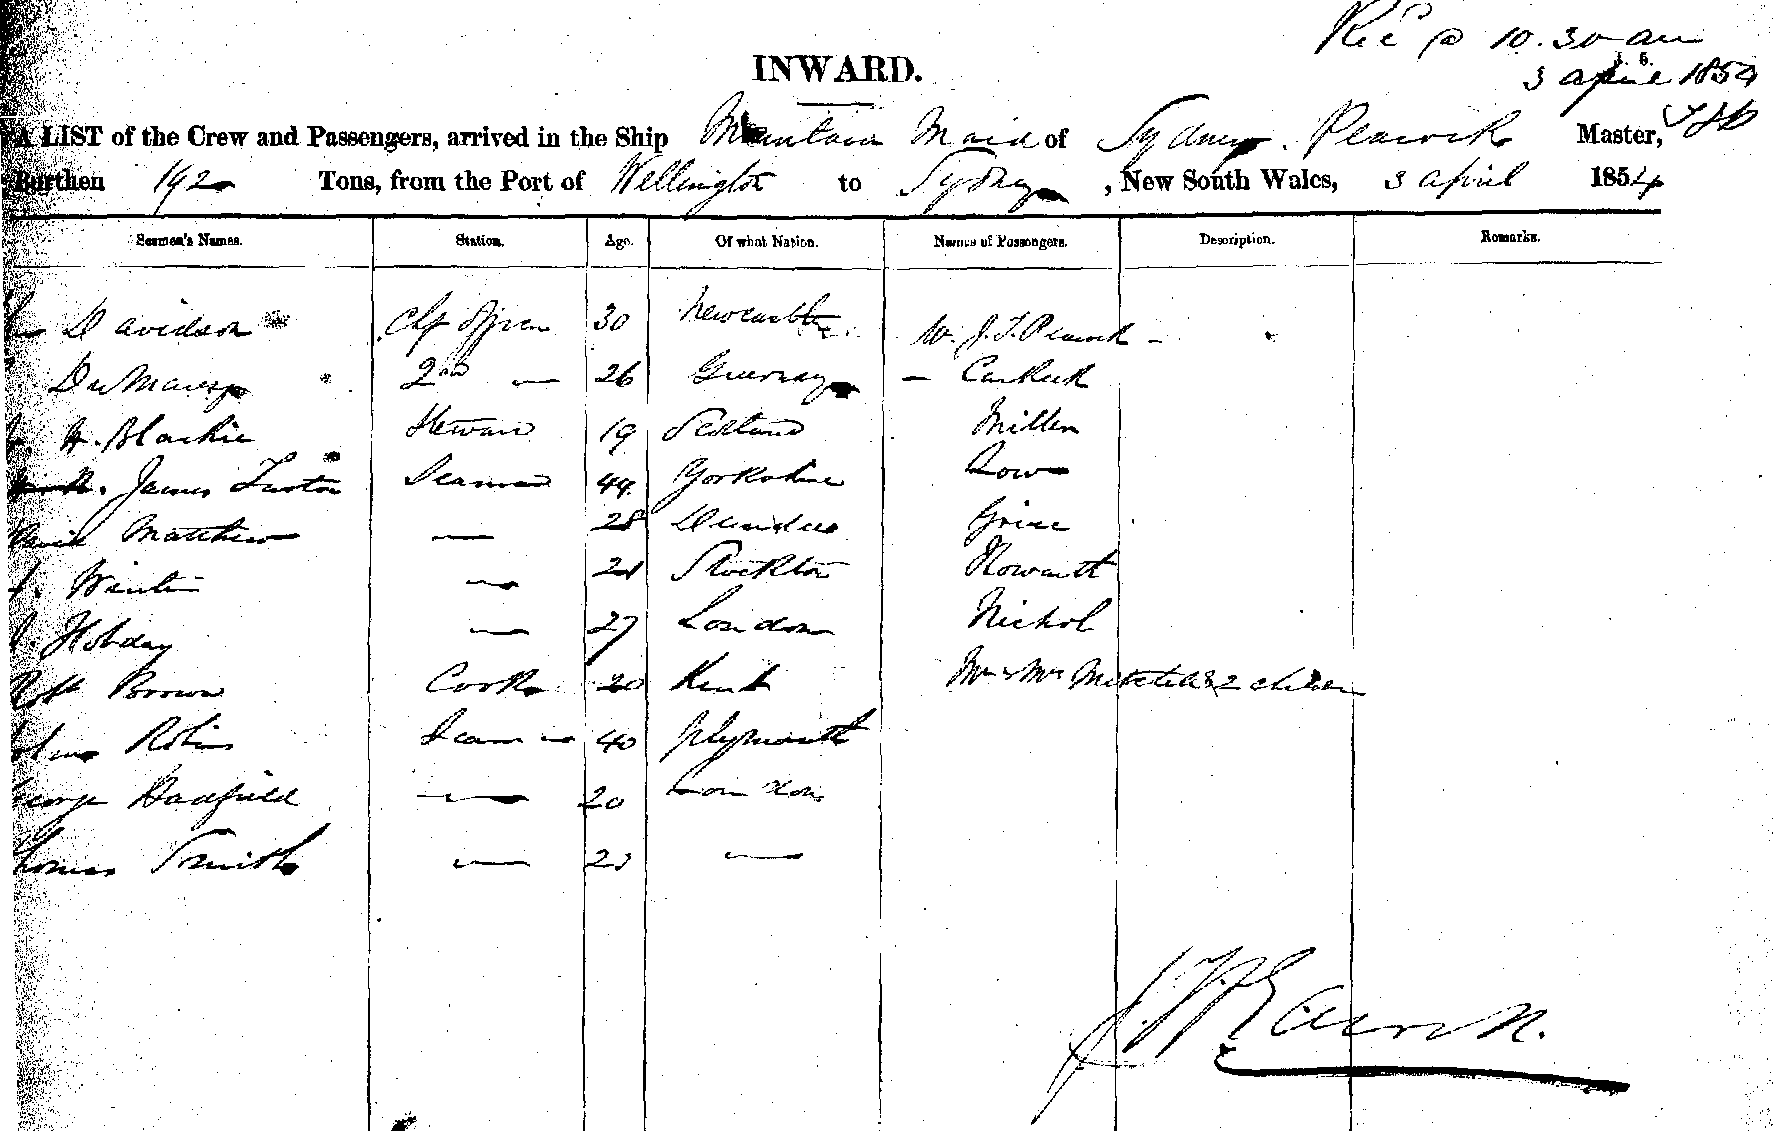 Rec @ 10.30 am
3 April 1854
INWARD.
A LIST of the Crew and Passengers, arrived in the Ship Mountain Maid of Sydney. Peacock Master,
Burthen 192 Tons, from the Port of Wellington to Sydney, New South Wales, 3 April 1854
Seamen's Names. Station. Age. Of what Nation. Names of Passengers. Description. Remarks.
Davidson Chf Officer 30 Newcastle W. J. T. Peacock
26 Guernsey
2nd — Carkeek
H. Blackie Steward 19 Scotland Miller
James Seaman 44 Yorkshire Low
David Matthew — 28 Dundee
— 21 Stockton Howarth
Hobday — 27 London Nichol
Robt Brown Cook 20 Kent Mr & Mrs Mitchell & 2 children
Seaman 40 Plymouth
George Hadfield — 20 London
Thomas Smith — —
J. T. Peacock.